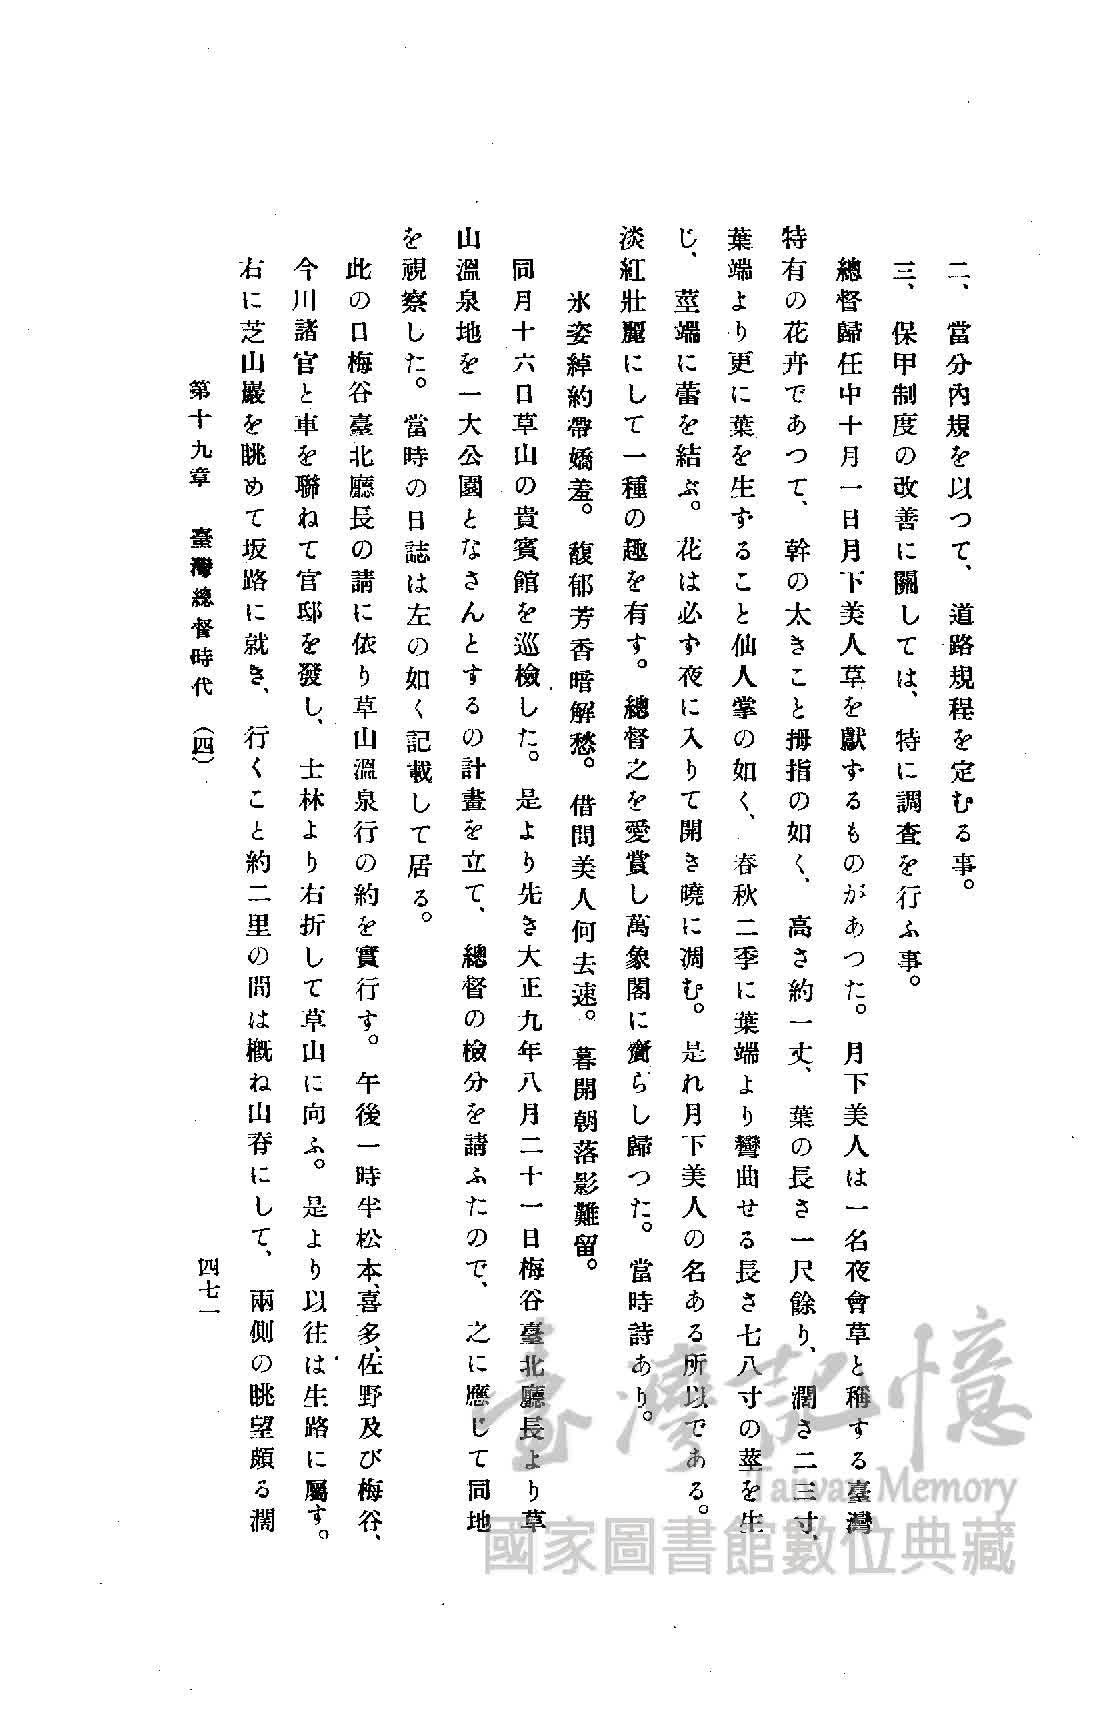 二、當分內規を以つて、道路規程を定むる事。
三、保甲制度の改善に關しては、特に調査を行ふ事。
總督歸任中十月一日月下美人草を獻ずるものがあつた。月下美人は一名夜會草と稱する臺灣
特有の花卉であつて、幹の太きこと拇指の如く、高さ約一丈、葉の長さ一尺餘り、濶さ二三寸、
葉端より更に葉を生ずること仙人掌の如く、春秋二季に葉端より彎曲せる長さ七八寸の莖を生
じ、莖端に蕾を結ぶ。花は必ず夜に入りて開き曉に凋む。是れ月下美人の名ある所以である。
淡紅壯麗にして一種の趣を有す。總督之を愛賞し萬象閣に齎らし歸つた。當時詩あり。
氷姿綽約帶嬌羞。馥郁芳香暗解愁。借問美人何去速。暮開朝落影難留。
同月十六日草山の貴賓館を巡檢した。是より先き大正九年八月二十一日梅谷臺北廳長より草
山溫泉地を一大公園となさんとするの計畫を立て、總督の檢分を請ふたので、之に應じて同地
を視察した。當時の日誌は左の如く記載して居る。
此の日梅谷臺北廳長の請に依り草山溫泉行の約を實行す。午後一時半松本、喜多、佐野及び梅谷、
今川諸官と車を聯ねて官邸を發し、士林より右折して草山に向ふ。是より以往は生路に屬す。
右に芝山巖を眺めて坂路に就き、行くこと約二里の間は概ね山脊にして、兩側の眺望頗る濶
第十九章 臺灣總督時代(四)
四七一
臺灣記憶
Taiwan Memory
國家圖書館數位典藏